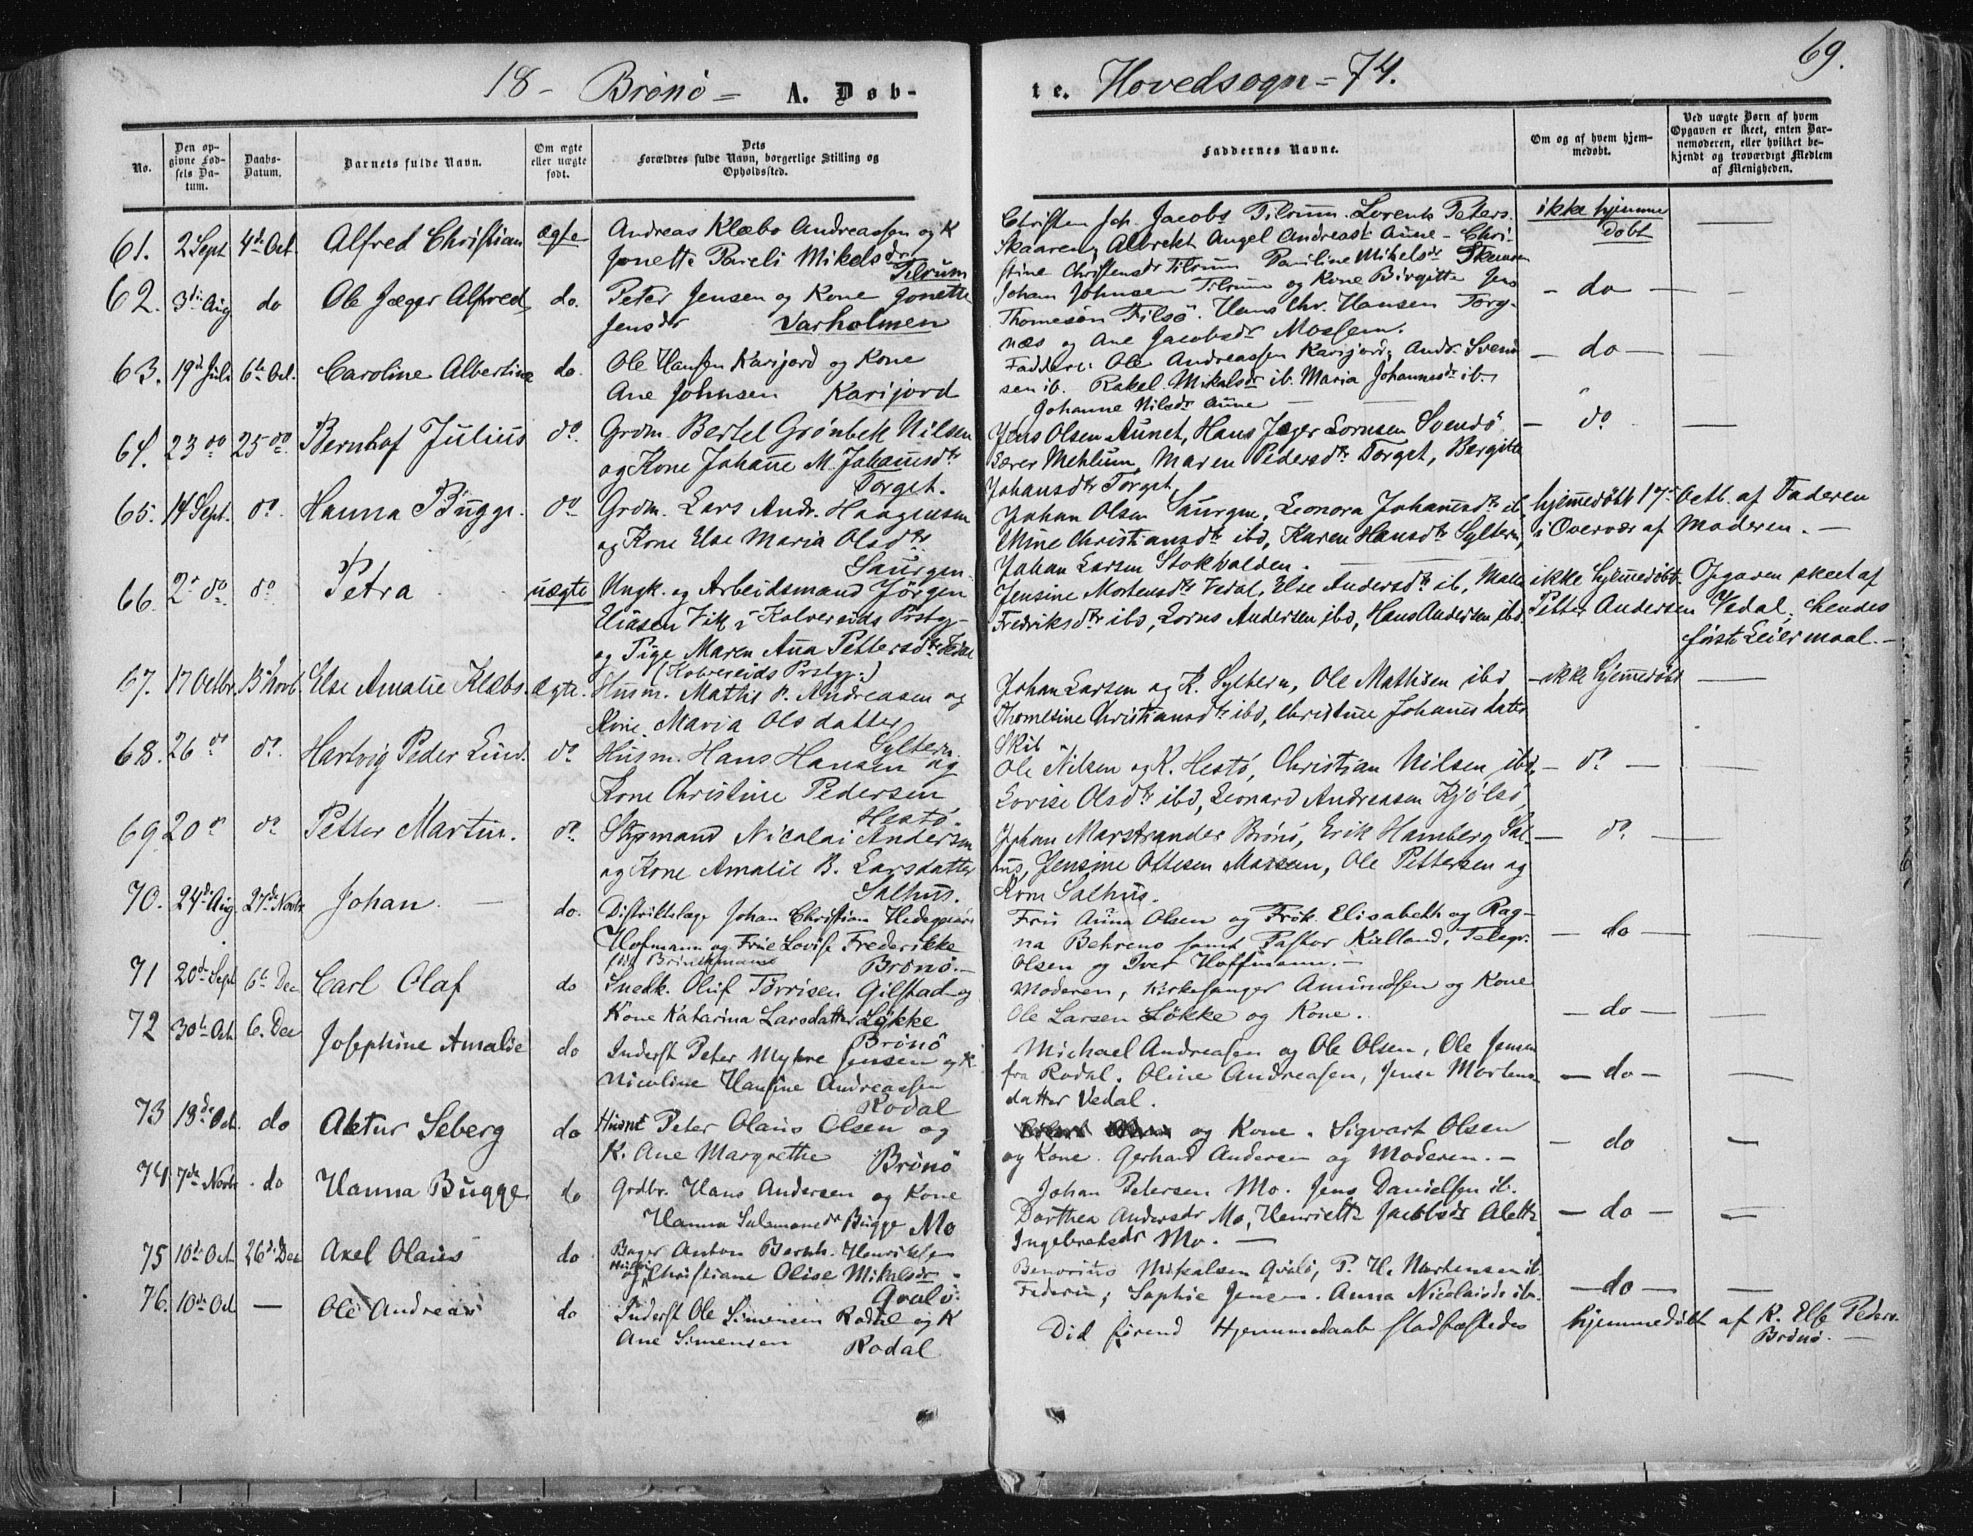 18 - Brønø = A. Døb-
te. Hovedsogn = 74. 69.
No.
Den opgivne Fødsels Datum.
Daabs-Datum.
Barnets fulde Navn.
Om ægte eller uægte født.
Dets Forældres fulde Navn, borgerlige Stilling og Opholdssted.
Faddernes Navne.
Om og af hvem hjemmedøbt.
Ved uægte Børn af hvem Opgaven er skeet, enten Barnemoderen, eller hvilket bekjendt og troværdigt Medlem af Menigheden.
61. 2 Sept 4de Oct. Alfred Christian ægte Andreas Klæbo Andreassen og K
Jonette Pareli Mikelsdr
Tilrum
Christen Joh. Jacobs Tilrum. Lorents Peters.
Skaaren, Albrekt Angel Andreas Aune - Chri-
stine Christensdr Tilrum Pauline Mikelsdr
ikke hjemme
døbt
62. 3die Aug do Ole Jæger Alfred do. Peter Jensen og Kone Jonette
Jensdr Varholmen
Johan Johnsen Tilrum og Kone Birgitte Jens
Thomesøn Tilsø. Hans Chr. Hansen Torg-
næs og Ane Jacobsdr Mosem.
- do -
63. 19de Juli 6te Oct. Caroline Albertine do. Ole Hansen Karijord og Kone
Ane Johnsen Karijord
Faddere: Ole Andreassen Karijord, Andr. Svend
sen ib. Rakel Mikalsdr ib. Maria Johannesdr ib.
Johanne Nilsdr Aune
- do -
64. 23 do 25 do Bernhof Julius do. Grdm. Bertel Grønbek Nilsen
og Kone Johanne M. Johansdtr
Torget.
Jens Olsen Aunet, Hans Jæger Lornsen Svendø
Lærer Mehlum, Maren Pedersdtr Torget, Bergitte
Johansdtr Torget
- do
65. 14 Sept. do Hanna Bugge. do Grdm. Lars Andr. Haagensen
og Kone Else Maria Olsdtr
Saurgen.
Johan Olsen Saurgen, Leonora Johannsdtr ib.
Mine Christiansdtr ibd, Karen Hansdtr Syltern,
Johan Larsen Stokvolden.
hjemmedøbt 17. Octb. af Faderen
i Overvær af Moderen. -
66. 2 do do Petra uægte Ungk. og Arbeidsmand Jørgen
Eliasen Vik i Kolvereids Prstgj.
og Pige Maren Ana Pettersdtr Vedal
(Kolvereids Prstgj.)
Jensine Mortensdtr Vedal, Else Andersdtr ib,
Fredriksdtr ibd, Lorns Andersen ibd, Hans Andersen ibd.
ikke hjemmedøbt Opgaven skeet af
Petter Andersen Vedal, hendes
første Leiermaal.
67. 17 Octbr. 15 Novb. Else Amalie Klæbo. ægte. Husm. Mathis P. Andreasen og
Kone Maria Olsdatter
Syltern
Johan Larsen og K. Syltern, Ole Mathisen ibd
Thomesine Christiansdtr ibd, Christine Johannsdatter
Skil
- ikke hjemmedøbt
68. 26 do do. Hartvig Peder Lund. do Husm. Hans Hansen og
Kone Christine Pedersen
Hestø.
Ole Nilsen og K. Hestø, Christian Nilsen ibd,
Lovise Olsdtr ibd, Leonard Andreasen Kjølsø
- do -
69. 20 do do Petter Martin. do. Nicolai Andersen
og Kone Amalie B. Larsdatter
Salhus.
Johan Marstrander Brønø, Erik Hamberg Sal-
hus, Jensine Ottesen Maseen, Ole Pettersen og
Kone Salhus.
- do -
70. 24de Aug 27de Novbr Johan. do. Distriktslæge Johan Christian
Hofmann og Frue Lovise Frederikke
født Brinchmann Brønø.
Fru Anna Olsen og Frøk. Elisabeth og Rag-
na Behrens samt Pastor Kielland, Telegr.
Olsen og Iver Hoffmann. -
- do -
71 20de Sept 6te Dec Carl Olaf do Snedk. Oluf Tørrisen Gilstad og
Kone Katarina Larsdatter Løkke
Brønø
Moderen, Kirkesanger Amundsen og Kone
Ole Larsen Løkke og Kone.
- do -
72 30te Oct. 6. Dec Josephine Amalie do Inderst Peter Myhre Jensen og K.
Nicoline Hansine Andreassen
Rodal
Michael Andreasen og Ole Olsen, Ole Jensen
fra Rodal. Oline Andreasen, Jense Mortens
datter Vedal.
- do -
73 13de Oct. do Aktur Seberg do Peter Olaus Olsen og
K. Ane Margrethe Brønø
og Kone. Sigvart Olsen
og Kone. Gerhard Andersen og Moderen. -
- do -
74 7de Novbr do Hanna Bugge do Grdbr. Hans Andersen og Kone
Hanna Salamonsdr Bugge Mo
Johan Petersen Mo. Jens Danielsen ib.
Dorthea Andersdr Mo, Henriette Jacobsdr Alette
Ingebretsdr Mo. -
- do -
75 10de Oct 26de Dec Axel Olaus do Bager Anton Bernh. Henriksen
og Hustru Christiane Olise Mikalsdr
Qvalø.
Benorius Mikalsen Qvalø, P. H. Mortensen ib.
Faderen, Sophie Jensen. Anna Nicolaisdr ib.
- do -
76. 10de Oct - Ole Andreas do Inderst Ole Simensen Rodal og K
Ane Simensen Rodal
Død førend Hjemmedaab stadfæstedes hjemmedøbt af K. Else Peders.
Brønø.